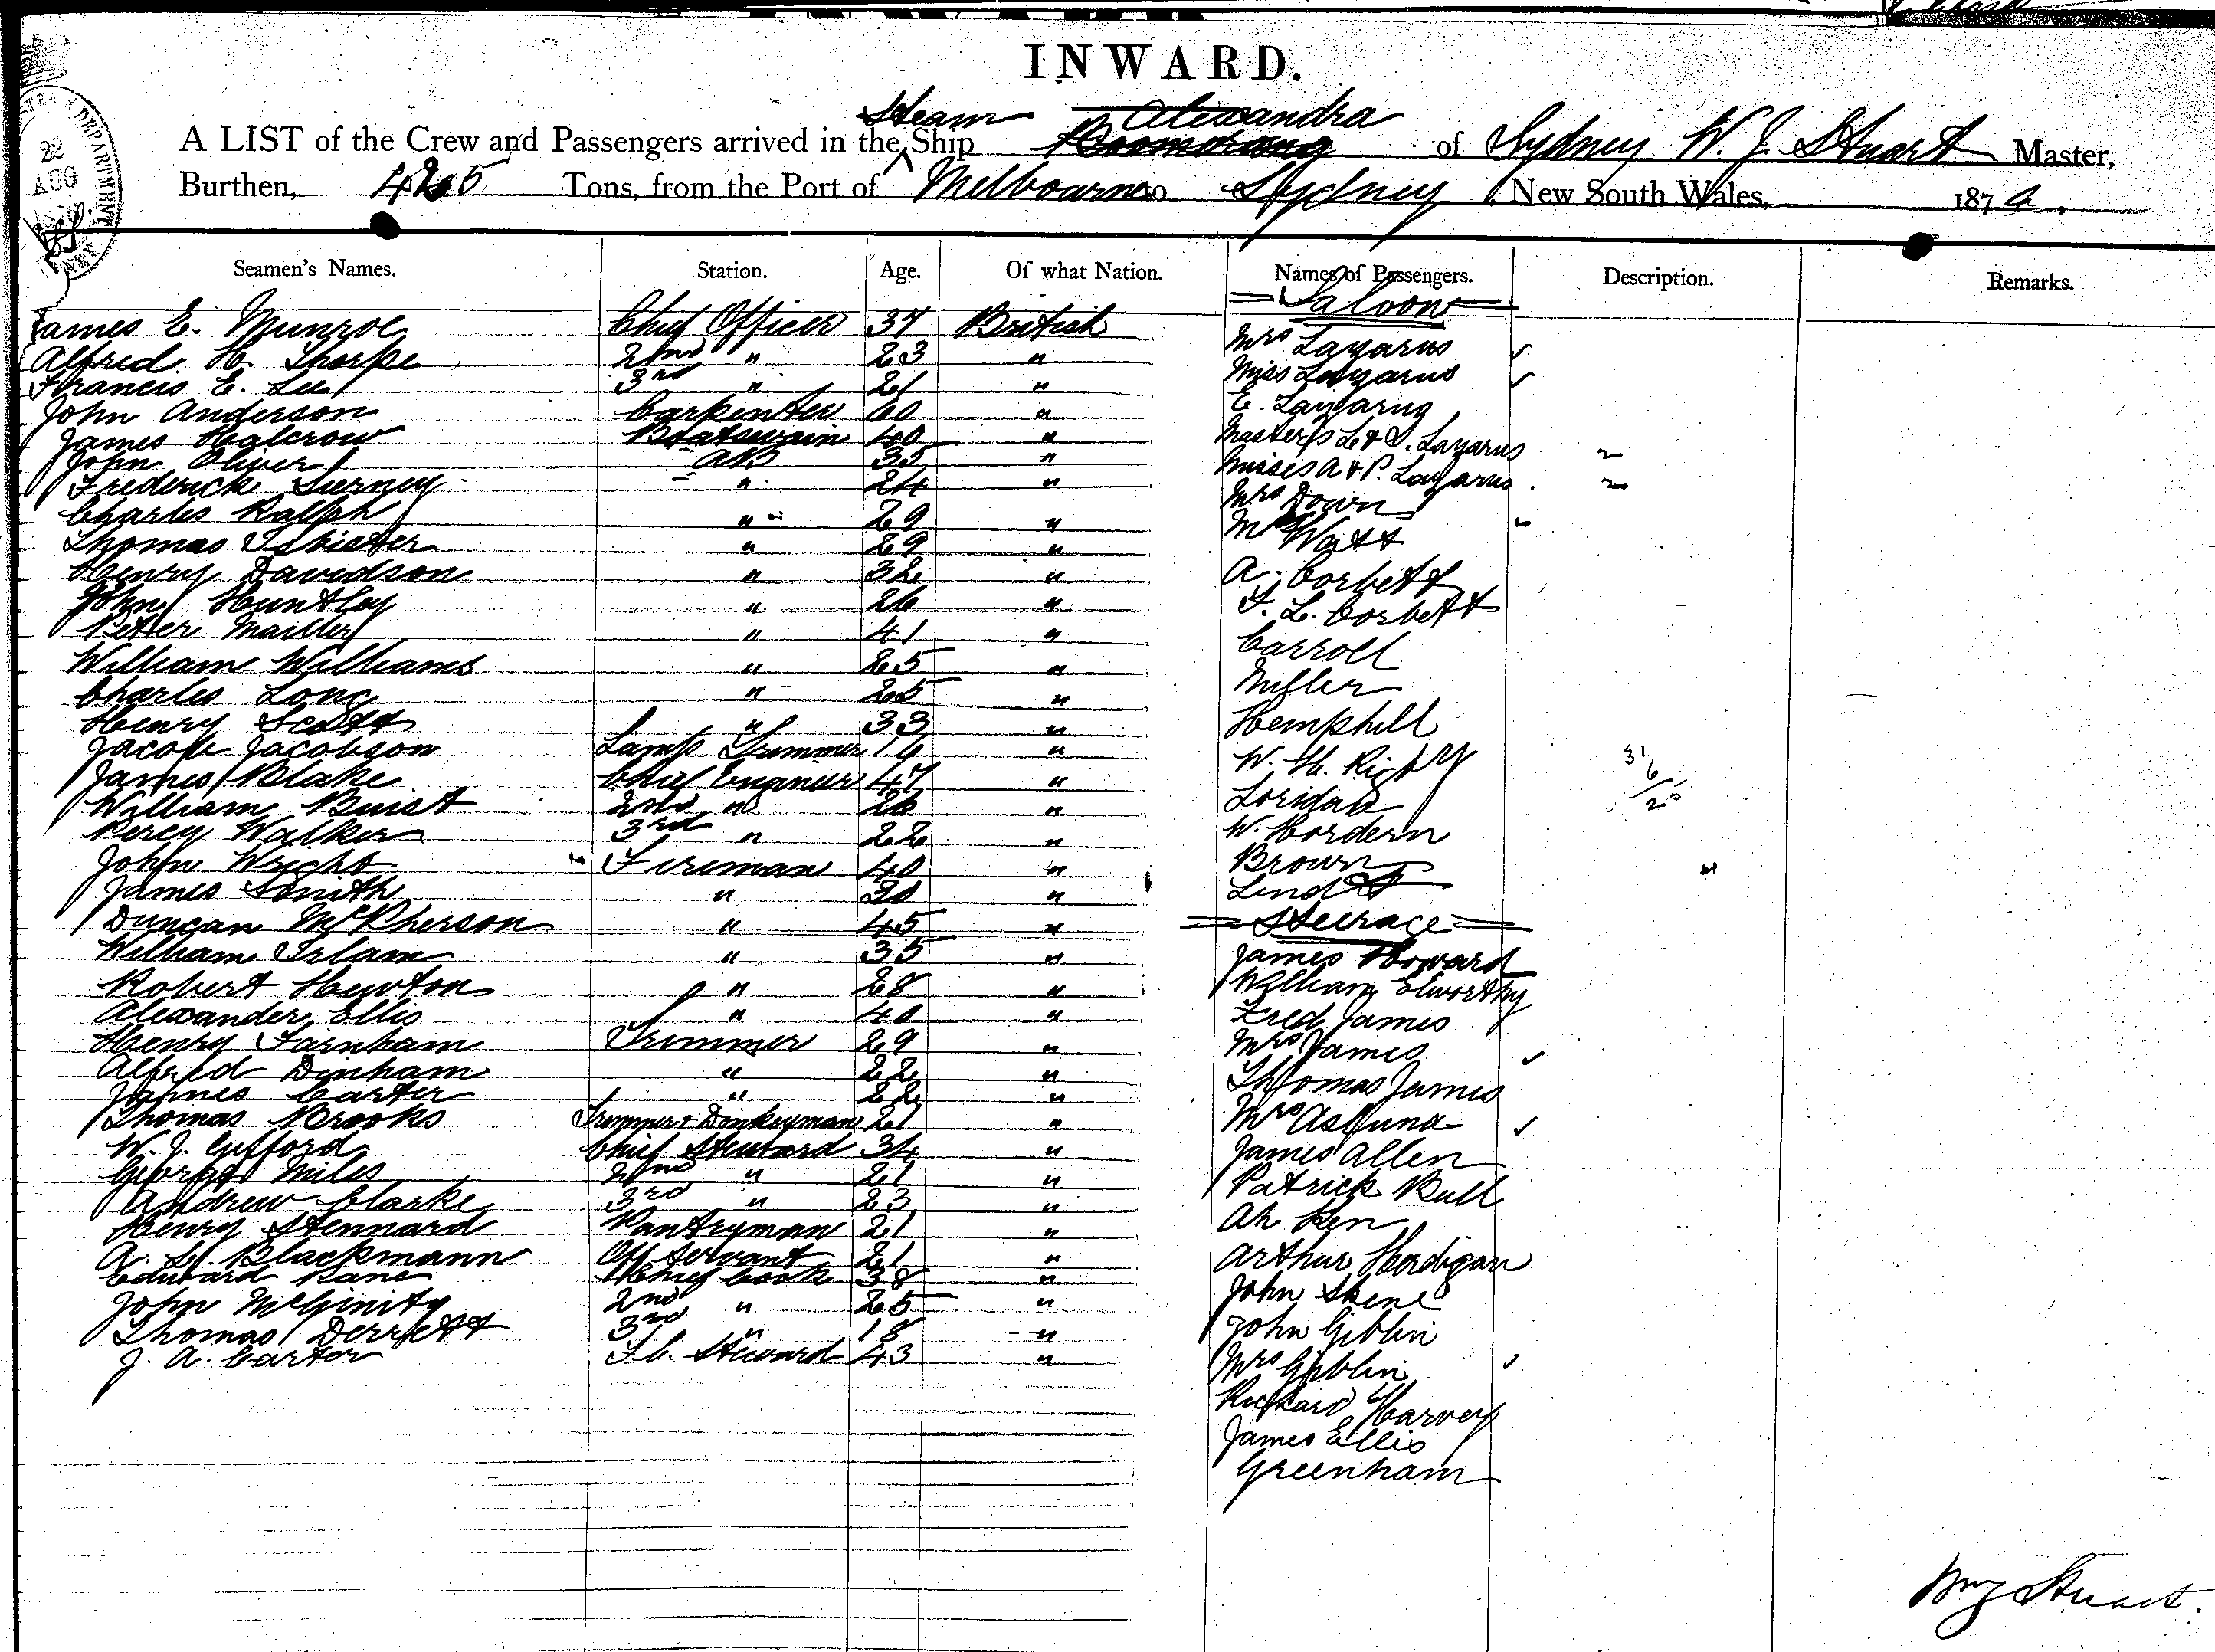 INWARD.
Steam Alexandra
A LIST of the Crew and Passengers arrived in the Ship Boomerang of Sydney W. J. Stuart Master,
Burthen, Tons, from the Port of Melbourne to Sydney, New South Wales, 1879.
22
AUG
DEPARTMENT
Seamen's Names. Station. Age. Of what Nation. Names of Passengers. Description. Remarks.
James E. Munroe Chief Officer 37 British
Alfred H. Thorpe 2nd " 23 "
Francis E. Lee 3rd " 21 "
John Anderson Carpenter 60 "
James Halcrow Boatswain 40 "
John Oliver AB 35 "
Frederick " 24 "
Charles Ralph " 29 "
Thomas Isbister " 29 "
Henry Davidson " 32 "
John Huntley " 26 "
Peter Mailler " 41 "
William Williams " 25 "
Charles Long " 25 "
Henry Scott " 33 "
Jacob Jacobson Lamp Trimmer 16 "
James Blake Chief Engineer 47 "
William Buist 2nd " 26 "
Percy Walker 3rd " 22 "
John Wright Fireman 40 "
James Smith " 30 "
Duncan McPherson " 45 "
William Irlam " 35 "
Robert Hewton " 28 "
Alexander Ellis " 40 "
Henry Farnham Trimmer 29 "
Alfred Denham " 22 "
James Carter " 22 "
Thomas Brooks Trimmer & Donkeyman 21 "
W. J. Gifford Chief Steward 34 "
George Miles 2nd " 21 "
Andrew Clarke 3rd " 23 "
Henry Stennard Pantryman 21 "
A. L. Blackmann Off Servant 21 "
Edward Kane Chief Cook 38 "
John McGinity 2nd " 25 "
Thomas Derrett 3rd " 18 "
J. A. Carter F.C. Steward 43 "
Saloon
Mrs Lazarus
Miss Lazarus
E. Lazarus
Masters L & S. Lazarus
Misses A & P. Lazarus
Mrs Down
Mr Watt
A. Corbett
T. L. Corbett
Carroll
Miller
Hemphill
W. H. Rigby
Loridan
W. Hordern
Brown
Lindt
Steerage
James Howard
William Elworthy
Fred James
Mrs James
Thomas James
Mrs
James Allen
Patrick Bull
Ah Ken
Arthur Hordigan
John Skene
John Giblin
Mrs Giblin
Richard Harvey
James Ellis
Greenham
31
6
25
Wm J Stuart.